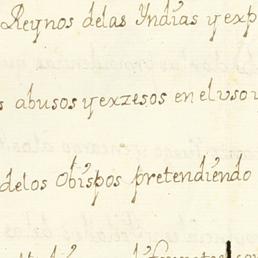 Reynos delas Yndias y exp
s abusos y exzesos en el uso
delos Obispos pretendiendo